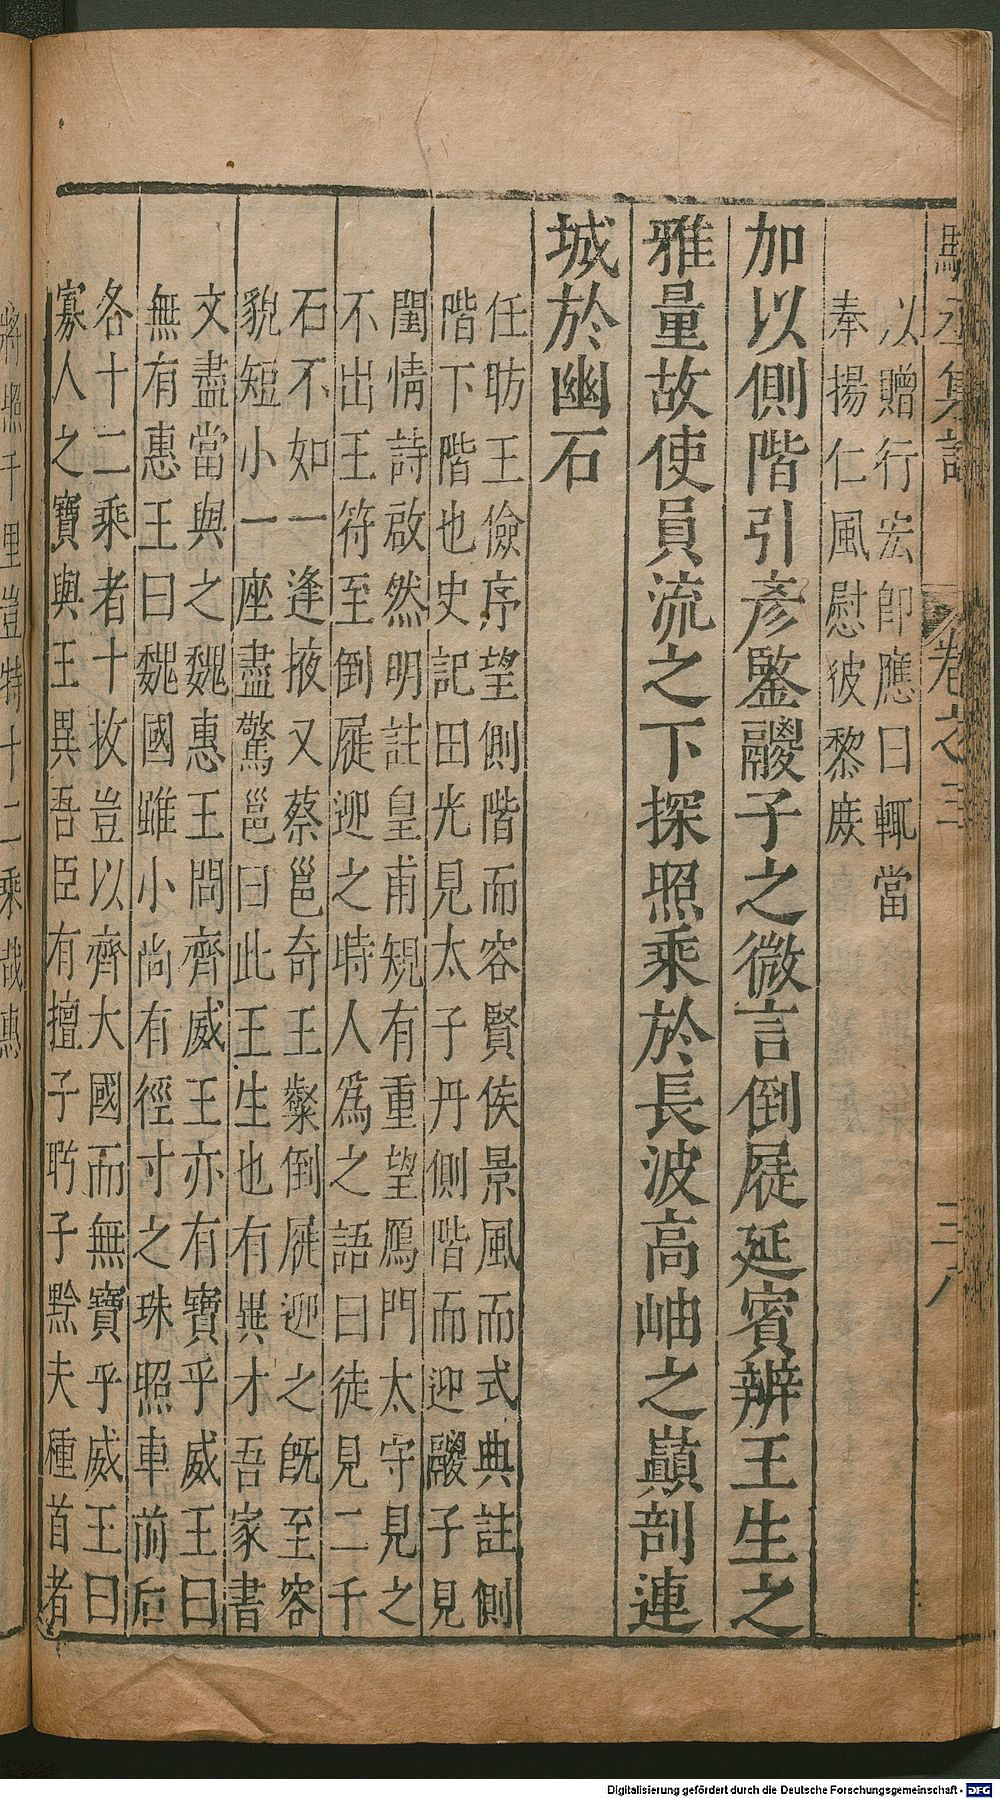 集註 卷之三 三八
以贈行宏卽應曰輒當
奉揚仁風慰彼黎庶
加以側階引彥鑒鬷子之微言倒屣延賓辨王生之
雅量故使員流之下探照乘於長波高岫之巔剖連
城於幽石
任昉王儉序望側階而容賢俟景風而式典註側
階下階也史記田光見太子丹側階而迎鬷子見
閨情詩啟然明註皇甫規有重望鴈門太守見之
不出王符至倒屣迎之時人爲之語曰徒見二千
石不如一逢掖又蔡邕奇王粲倒屣迎之旣至容
貌短小一座盡驚邕曰此王生也有異才吾家書
文盡當與之魏惠王問齊威王亦有寶乎威王曰
無有惠王曰魏國雖小尚有徑寸之珠照車前后
各十二乘者十枚豈以齊大國而無寶乎威王曰
寡人之寶與王異吾臣有擅子盻子黔夫種首者
將照千里豈特十二乘哉惠
Digitalisierung gefördert durch die Deutsche Forschungsgemeinschaft - DFG